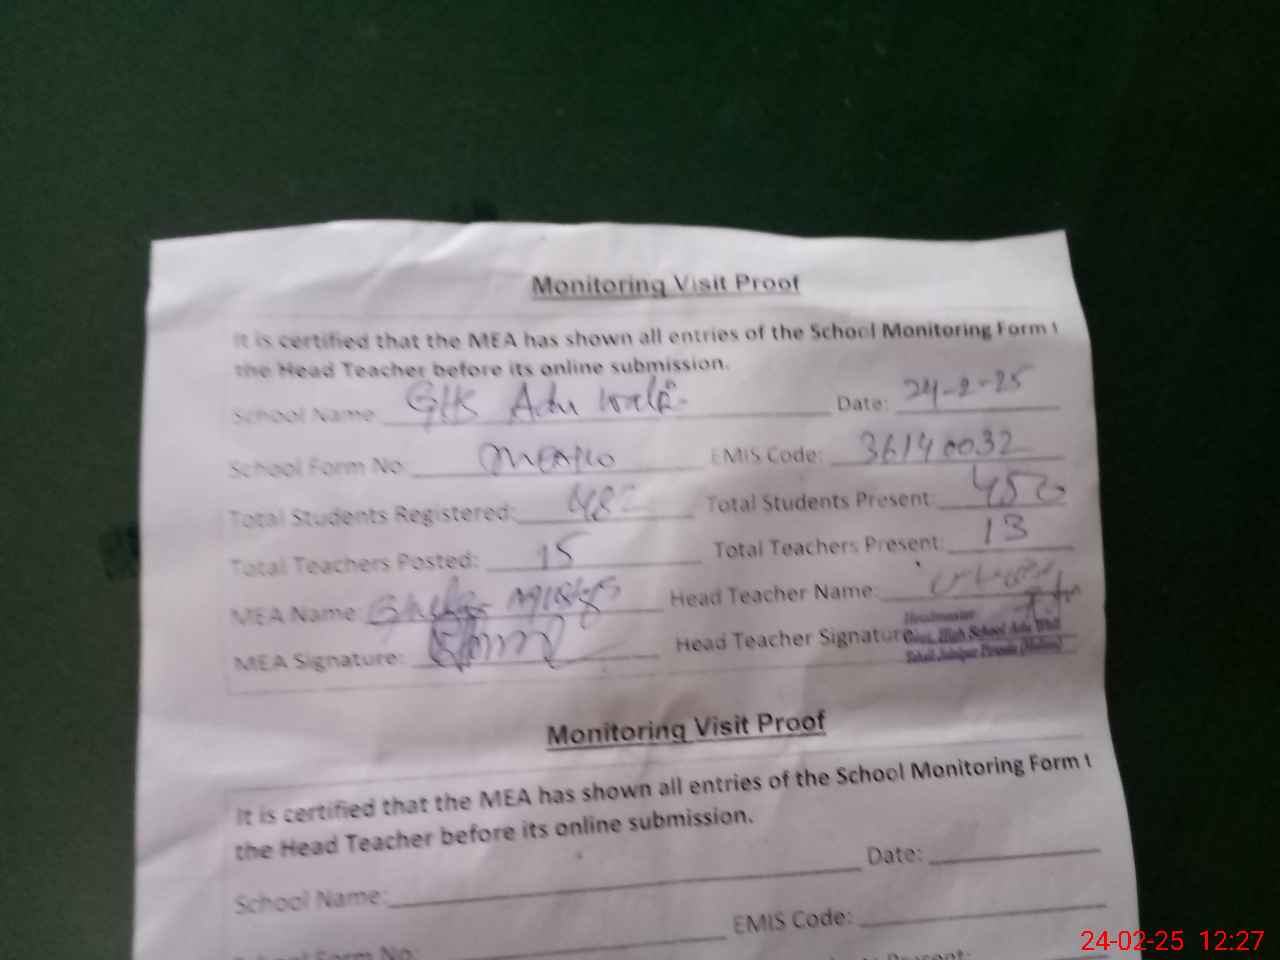 Monitoring Visit Proof
It is certified that the MEA has shown all entries of the School Monitoring Form t
the Head Teacher before its online submission.
School Name: GHS Adu Wala Date: 24-2-25
School Form No. EMIS Code: 36140032
Total Students Registered: Total Students Present:
Total Teachers Posted: 15 Total Teachers Present: 13
MEA Name: Head Teacher Name:
MEA Signature: Head Teacher Signature
Headmaster
Govt. High School Adu
Monitoring Visit Proof
It is certified that the MEA has shown all entries of the School Monitoring Form t
the Head Teacher before its online submission.
School Name: Date:
School Form No. EMIS Code:
Present:
24-02-25 12:27